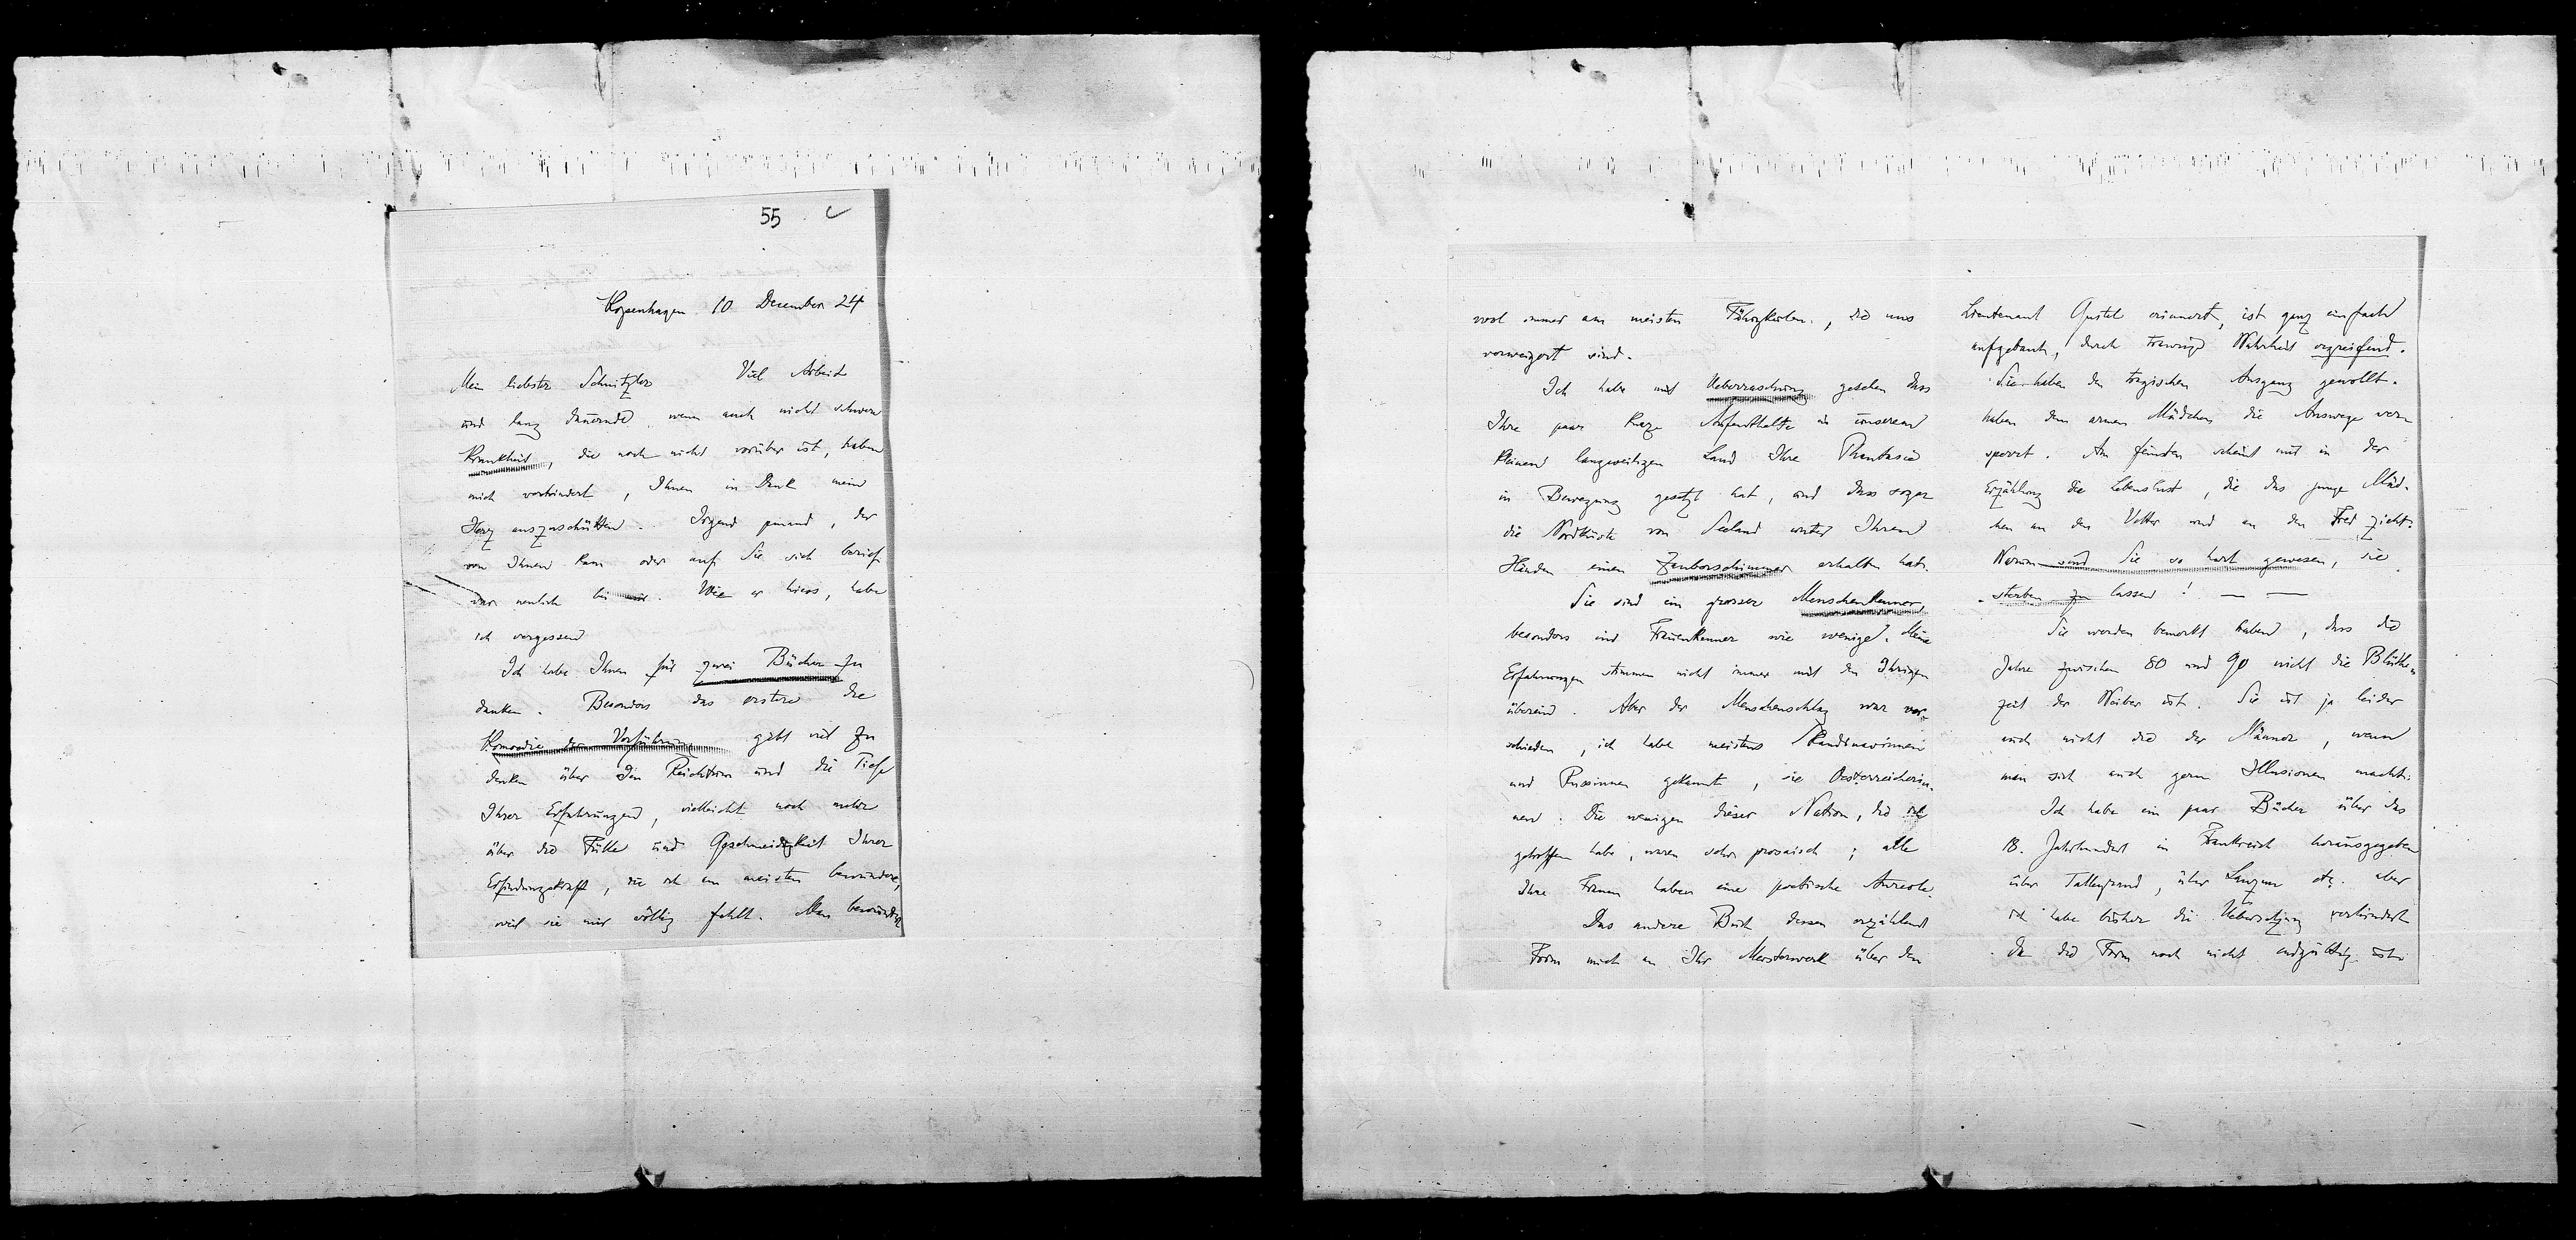 55
Kopenhagen 10 December 24
Mein liebster Schnitzler Viel Arbeit
und lang dauernde, wenn auch nicht schwere
Krankheit, die noch nicht vorüber ist, haben
mich verhindert, Ihnen in Dank mein
Herz auszuschütten. Irgend jemand, der
von Ihnen kam oder auf Sie sich berief
war neulich bei mir. Wie er hiess, habe
ich vergessen
Ich habe Ihnen für zwei Bücher zu
danken. Besonders das erstere die
Komoedie der Verführung gibt viel zu
denken über den Reichtum und die Tiefe
Ihrer Erfahrungen, vielleicht noch mehr
über die Fülle und Geschmeidigkeit Ihrer
Erfindungskraft, die ich am meisten bewundere,
weil sie mir völlig fehlt. Man bewundert
wol immer am meisten Fähigkeiten, die uns
verweigert sind.
Ich habe mit Ueberraschung gesehen dass
Ihre paar kurze Aufenthalte in unserem
kleinen langweiligen Land Ihre Phantasie
in Bewegung gesetzt hat, und dass sogar
die Nordküste von Seeland unter Ihren
Händen einen Zauberschimmer erhalten hat.
Sie sind ein grosser Menschenkenner,
besonders ein Frauenkenner wie wenige. Meine
Erfahrungen stimmen nicht immer mit den Ihrigen
überein. Aber der Menschenschlag war ver-
schieden, ich habe meistens Skandinavinnen
und Russinnen gekannt, sie Oesterreicherin-
nen. Die wenigen dieser Nation, die ich
getroffen habe, waren sehr prosaisch; alle
Ihre Frauen haben eine poetische Aureole.
Das andere Buch dessen erzählende
Form mich an Ihr Meisterwerk über den
Lieutenant Gustel erinnert, ist ganz einfach
aufgebaut, durch traurige Wahrheit ergreifend.
Sie haben den tragischen Ausgang gewollt.
haben dem armen Mädchen die Auswege ver-
sperrt. Am feinsten scheint mir in der
Erzählung die Lebenslust, die das junge Mäd-
chen an den Vetter und an den Fred zieht.
Warum sind Sie so hart gewesen, sie
sterben zu lassen! — —
Sie werden bemerkt haben, dass die
Jahre zwischen 80 und 90 nicht die Blüthe-
zeit der Weiber ist. Sie ist ja leider
auch nicht die der Männer, wenn
man sich auch gern Illusionen macht.
Ich habe ein paar Bücher über das
18. Jahrhundert in Frankreich herausgegeben
über Talleyrand, über Lauzun etz. aber
ich habe bisher die Uebersetzung verhindert
da die Form noch nicht endgültig ist.